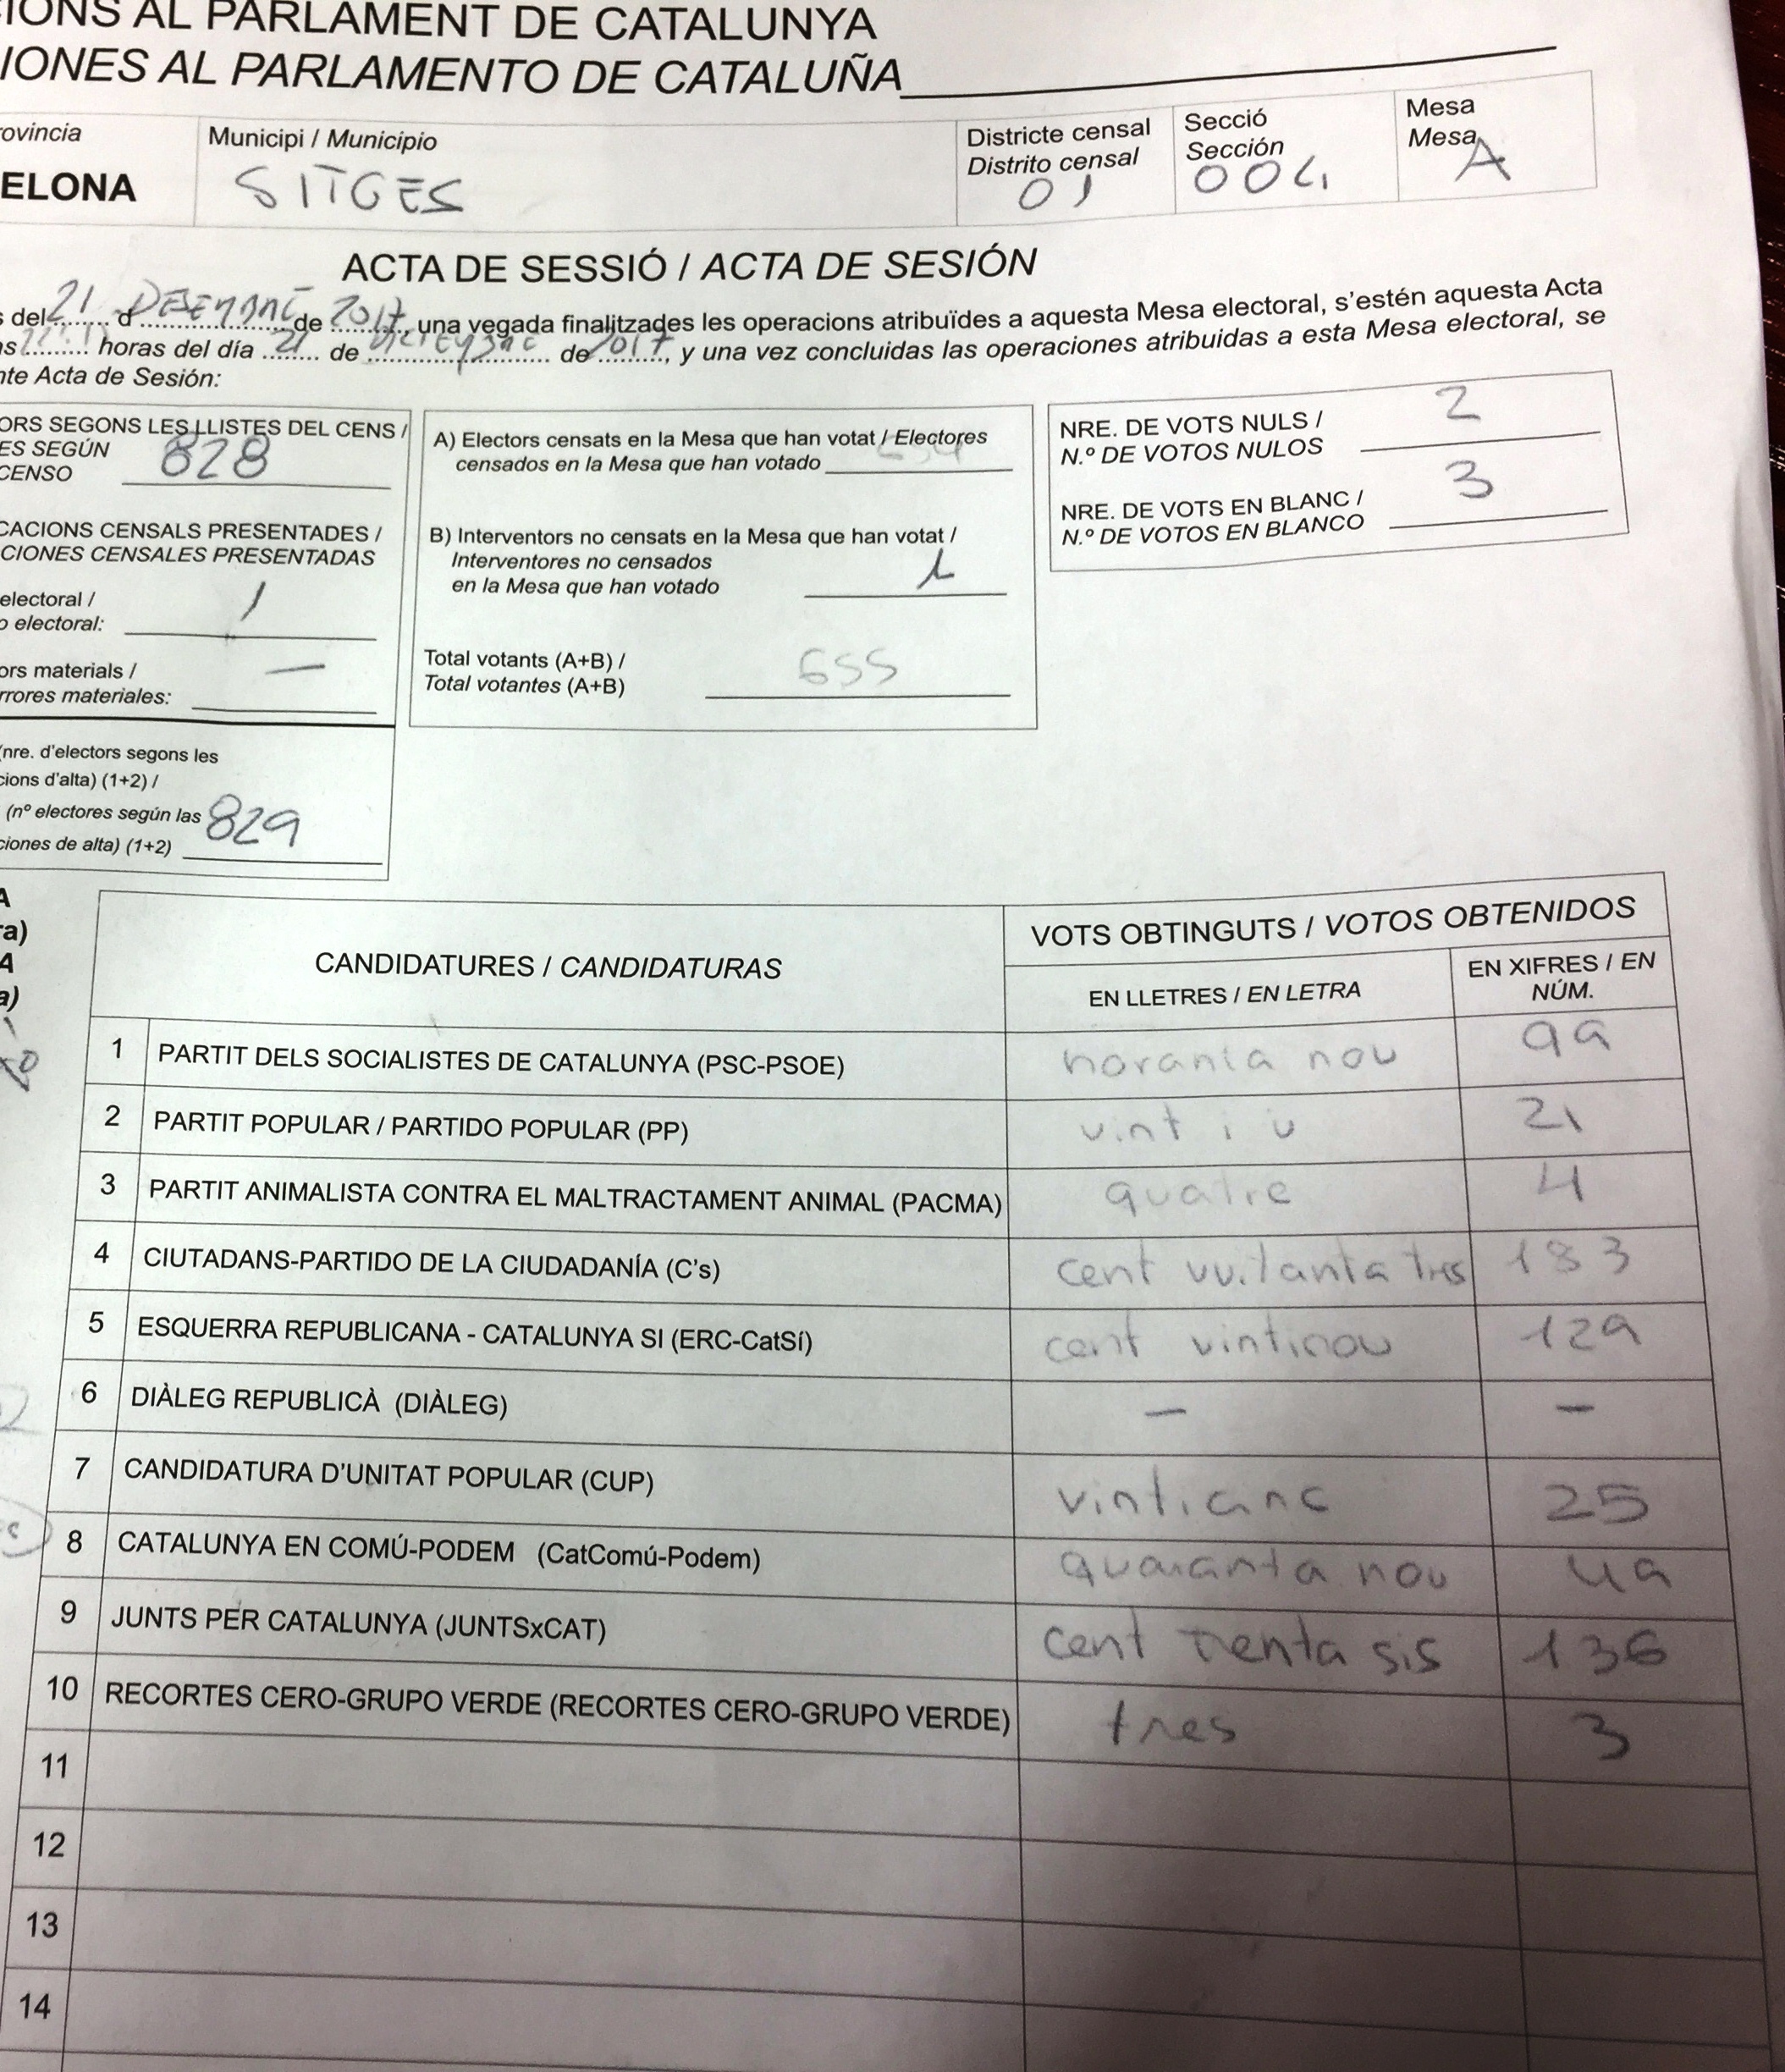 IONS AL PARLAMENT DE CATALUNYA
IONES AL PARLAMENTO DE CATALUÑA
rovincia
ELONA
Municipi / Municipio
SITGES
Districte censal
Distrito censal
01
Secció
Sección
004
Mesa
Mesa
A
ACTA DE SESSIÓ / ACTA DE SESIÓN
s del 21 d de 2017, una vegada finalitzades les operacions atribuïdes a aquesta Mesa electoral, s'estén aquesta Acta
horas del día 21 de de 2017, y una vez concluidas las operaciones atribuidas a esta Mesa electoral, se
nte Acta de Sesión:
ORS SEGONS LES LLISTES DEL CENS /
ES SEGÚN
CENSO
828
CACIONS CENSALS PRESENTADES /
CIONES CENSALES PRESENTADAS
electoral /
o electoral:
1
ors materials /
rrores materiales:
—
(nre. d'electors segons les
cions d'alta) (1+2) /
(nº electores según las
ciones de alta) (1+2)
829
A) Electors censats en la Mesa que han votat / Electores
censados en la Mesa que han votado
B) Interventors no censats en la Mesa que han votat /
Interventores no censados
en la Mesa que han votado
1
Total votants (A+B) /
Total votantes (A+B)
655
NRE. DE VOTS NULS /
N.º DE VOTOS NULOS
2
NRE. DE VOTS EN BLANC /
N.º DE VOTOS EN BLANCO
3
CANDIDATURES / CANDIDATURAS
VOTS OBTINGUTS / VOTOS OBTENIDOS
EN LLETRES / EN LETRA
EN XIFRES / EN NÚM.
1 PARTIT DELS SOCIALISTES DE CATALUNYA (PSC-PSOE) noranta nou 99
2 PARTIT POPULAR / PARTIDO POPULAR (PP) vint i u 21
3 PARTIT ANIMALISTA CONTRA EL MALTRACTAMENT ANIMAL (PACMA) quatre 4
4 CIUTADANS-PARTIDO DE LA CIUDADANÍA (C's) cent vuitanta tres 183
5 ESQUERRA REPUBLICANA - CATALUNYA SI (ERC-CatSí) cent vintinou 129
6 DIÀLEG REPUBLICÀ (DIÀLEG) — —
7 CANDIDATURA D'UNITAT POPULAR (CUP) vinticinc 25
8 CATALUNYA EN COMÚ-PODEM (CatComú-Podem) quaranta nou 49
9 JUNTS PER CATALUNYA (JUNTSxCAT) cent trenta sis 136
10 RECORTES CERO-GRUPO VERDE (RECORTES CERO-GRUPO VERDE) tres 3
11
12
13
14